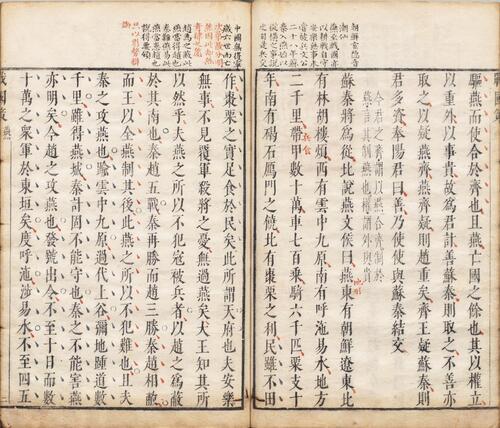 驅燕而使合於齊也且燕亡國之餘也其以權立
以重外以事貴故為君計善蘇秦則取之不善亦
取之以疑燕齊燕齊疑則趙重矣齊王疑蘇秦則
君多資奉陽君曰善乃使使與蘇秦結交
蘇秦將為從北說燕文侯曰燕東有朝鮮遼東北
有林胡樓煩西有雲中九原南有呼沲易水地方
二千里帶甲數十萬車七百乘騎六千匹粟支十
年南有碣石雁門之饒北有棗栗之利民雖不田
燕至戰國亦
以耕戰自守
安樂無事未
嘗被兵文公
二十八年蘇
秦入燕始以
從橫之事說
之自是兵交
中國無復寧
歲六世而亡
作棗栗之實足食於民矣此所謂天府也夫安樂
無事不見覆軍殺將之憂無過燕矣大王知其所
以然乎夫燕之所以不犯寇被兵者以趙之為蔽
於其南也秦趙五戰秦再勝而趙三勝秦趙相敝
而王以全燕制其後此燕之所以不犯難也且夫
秦之攻燕也踰雲中九原過代上谷彌地踵道數
千里雖得燕城秦計固不能守也秦之不能害燕
亦明矣今趙之攻燕也發號出令不至十日而數
十萬之眾軍於東垣矣度呼沲涉易水不至四五
戰國策 燕